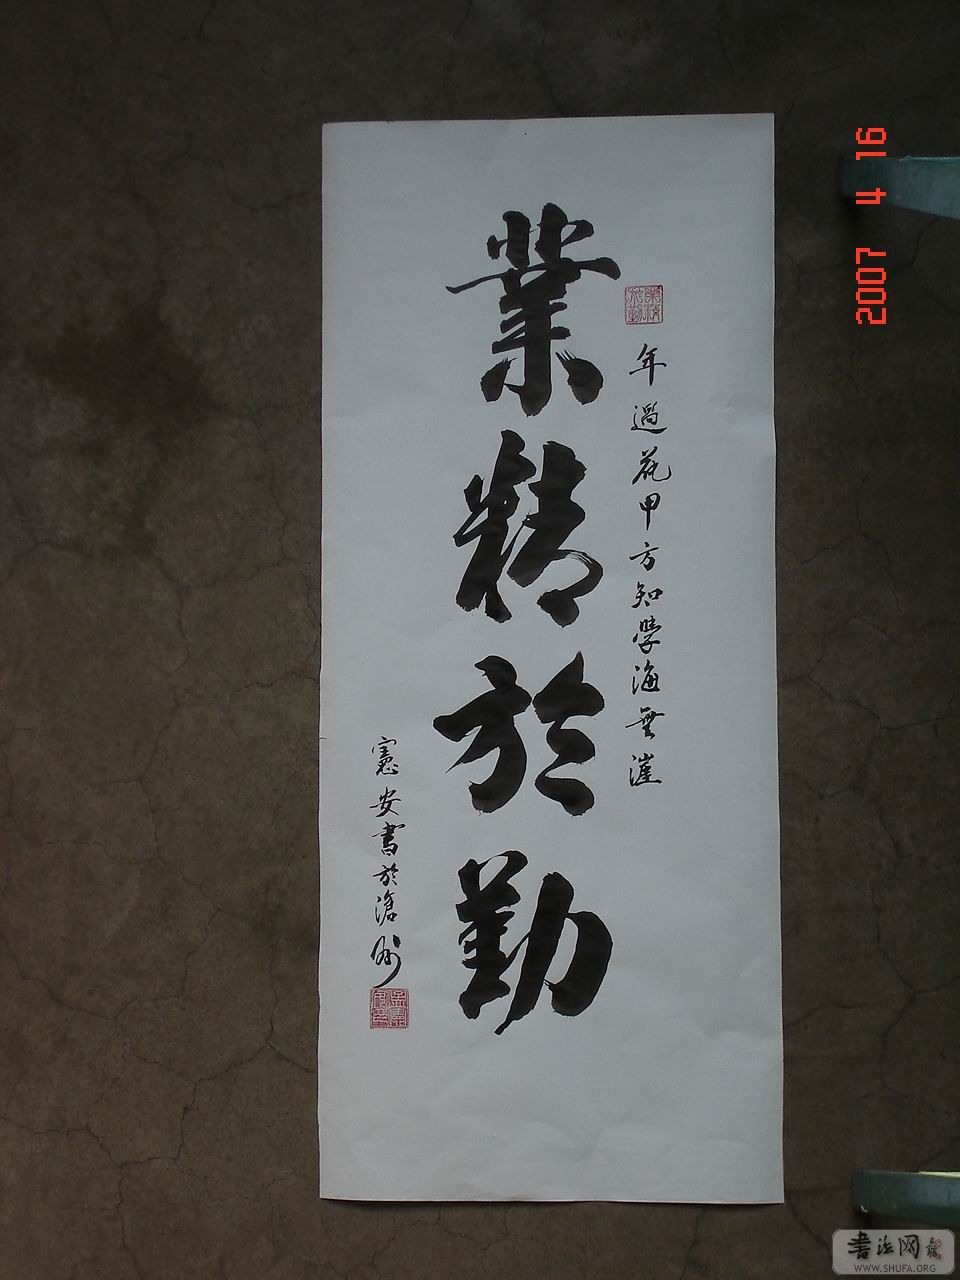 年過花甲方知學海無漄
業精於勤
憲安書於滄州
2007 4 16
書法网
WWW.SHUFA.ORG